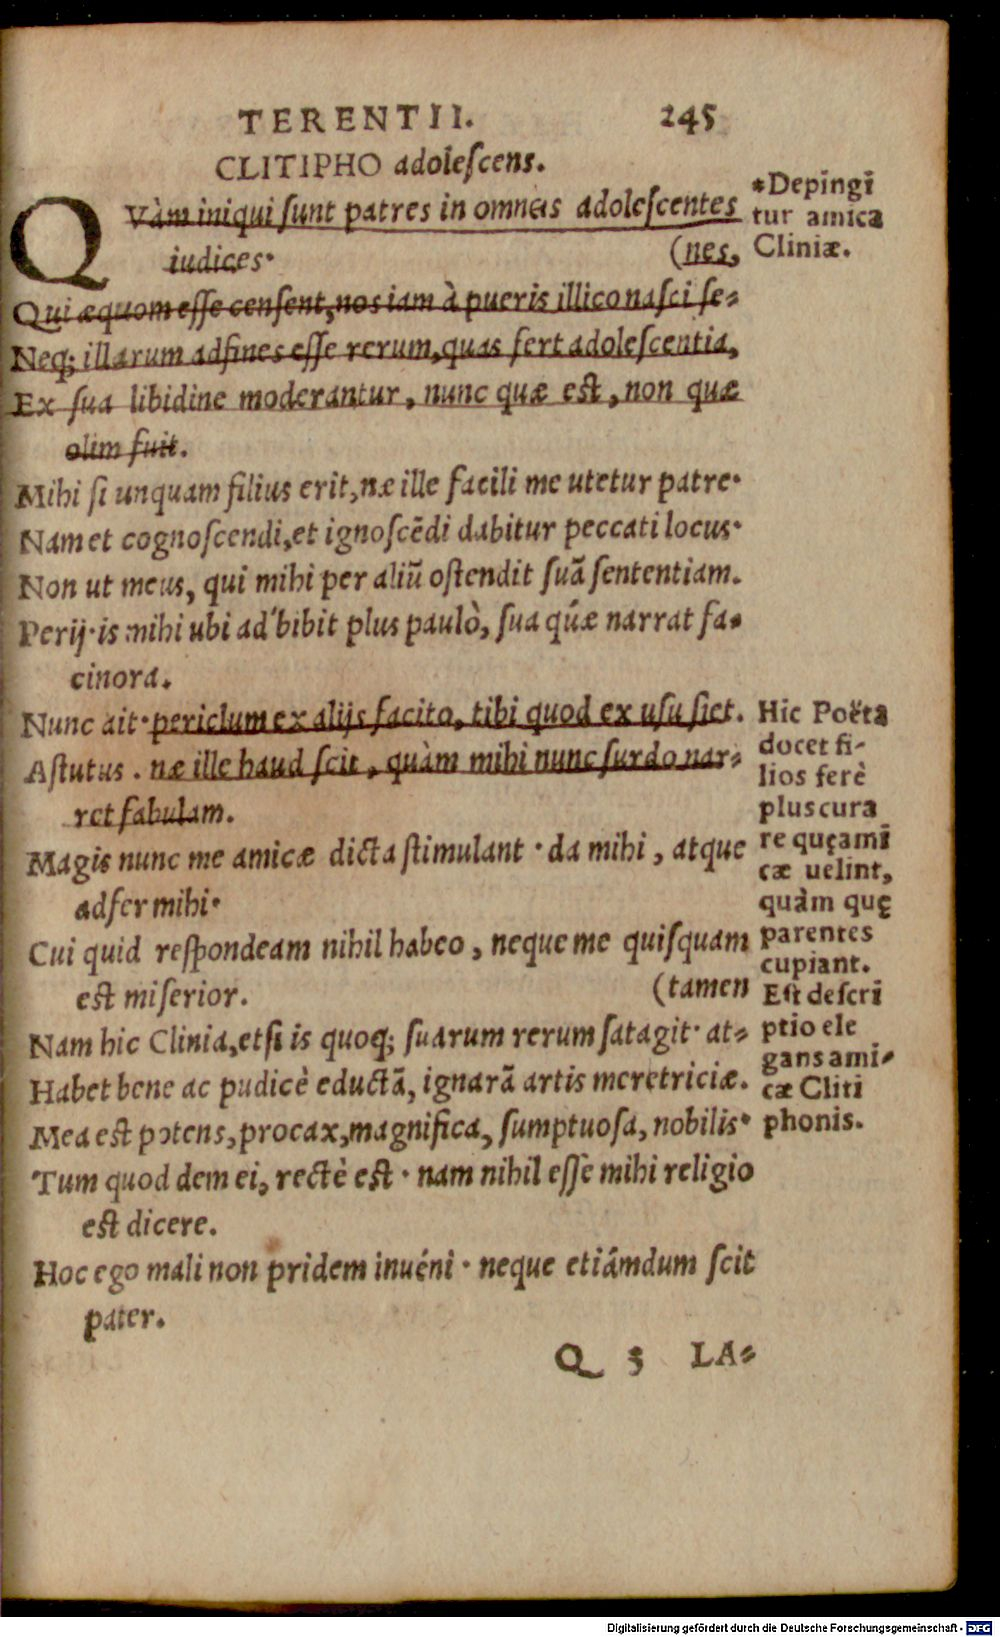 TERENTII. 245
CLITIPHO adoleſcens.
QVàm iniqui ſunt patres in omneis adoleſcentes
iudices· (nes,
Qui æquom eſſe cenſent, nos iam à pueris illico naſci ſe-
Neq; illarum adfines eſſe rerum, quas fert adoleſcentia,
Ex ſua libidine moderantur, nunc quæ est, non quæ
olim fuit.
Mihi ſi unquam filius erit, næ ille facili me utetur patre·
Nam et cognoſcendi, et ignoſcēdi dabitur peccati locus·
Non ut meus, qui mihi per aliū oſtendit ſuā ſententiam.
Perij· is mihi ubi ad'bibit plus paulò, ſua quǽ narrat fa-
cinora.
Nunc ait· periclum ex alijs facito, tibi quod ex uſu ſiet.
Aſtutus. næ ille haud ſcit, quàm mihi nunc ſurdo nar-
ret fabulam.
Magis nunc me amicæ dicta ſtimulant · da mihi, atque
adfer mihi·
Cui quid reſpondeam nihil habeo, neque me quiſquam
est miſerior. (tamen
Nam hic Clinia, etſi is quoq; ſuarum rerum ſatagit· at-
Habet bene ac pudicè eductā, ignarā artis meretriciæ.
Mea est potens, procax, magnifica, ſumptuoſa, nobilis·
Tum quod dem ei, rectè est · nam nihil eſſe mihi religio
est dicere.
Hoc ego mali non pridem inuéni · neque etiámdum ſcit
pater.
Q 3 LA-
*Depingī
tur amica
Cliniæ.
Hic Poëta
docet fi-
lios ferè
plus cura
re quę amī
cæ uelint,
quàm quę
parentes
cupiant.
Est deſcrī
ptio ele
gans ami-
cæ Cliti
phonis.
Digitalisierung gefördert durch die Deutsche Forschungsgemeinschaft - DFG